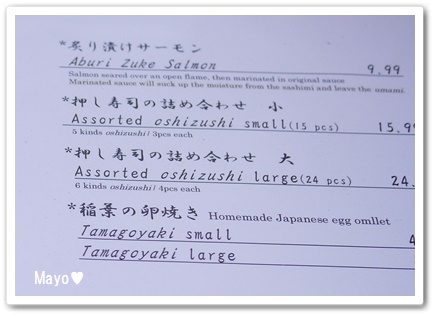 *炙り漬けサーモン
Aburi Zuke Salmon 9.99
Salmon seared over an open flame, then marinated in original sauce
Marinated sauce will suck up the moisture from the sashimi and leave the umami.
*押し寿司の詰め合わせ 小
Assorted oshizushi small(15 pcs) 15.9
5 kinds oshizushi/ 3pcs each
*押し寿司の詰め合わせ 大
Assorted oshizushi large(24 pcs) 24.
6 kinds oshizushi/ 4pcs each
*稲葉の卵焼き Homemade Japanese egg omllet
Tamagoyaki small 4
Tamagoyaki large
Mayo♥